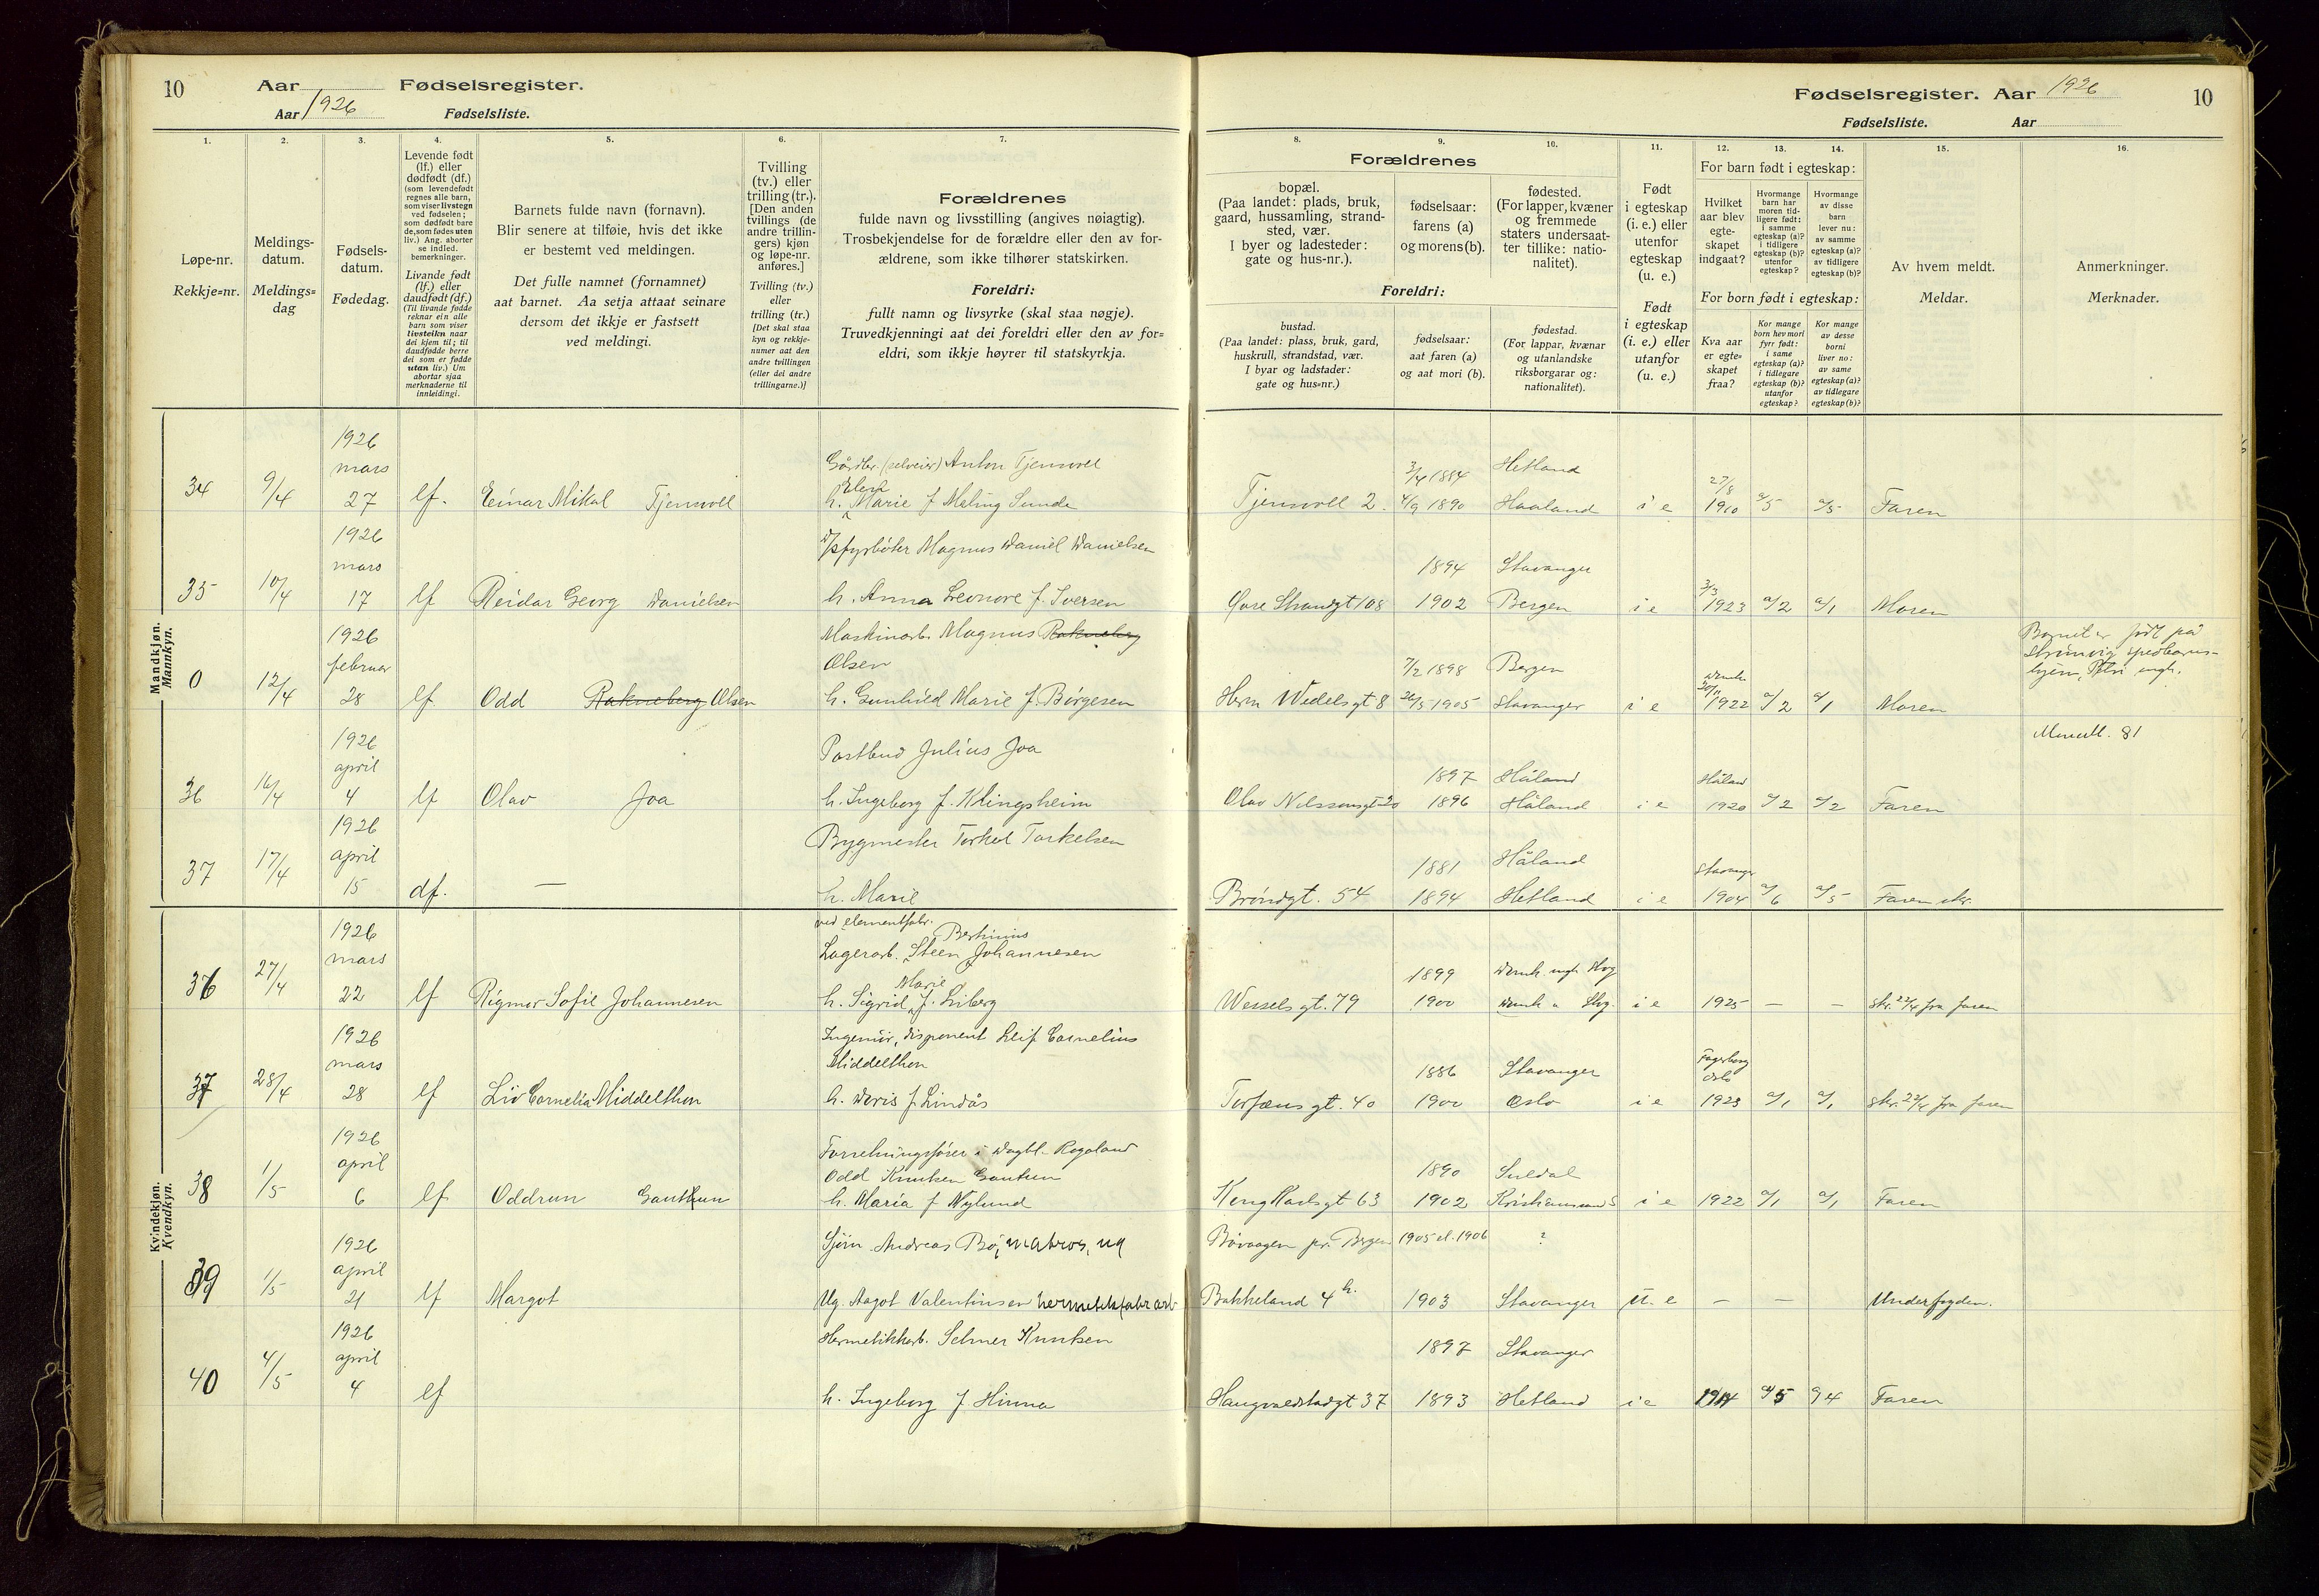 10
Aar
Fødselsregister.
Aar 1926
Fødselsliste.
1.
Løpe-nr.
Rekkje=nr.
2.
Meldings-
datum.
Meldings=
dag
3.
Fødsels-
datum.
Fødedag.
4.
Levende født
(lf.) eller
dødfødt (df.)
(som levendefødt
regnes alle barn,
som viser livstegn
ved fødselen;
som dødfødt bare
de, som fødes uten
liv.) Ang. aborter
se indled.
bemerkninger.
Livande født
(lf.) eller
daudfødt (df.)
(Til livande fødde
reknar ein alle
barn som viser
livsteikn naar
dei kjem til; til
daudfødde berre
dei som er fødde
utan liv.) Um
abortar sjaa
merknaderne til
innleidingi.
5.
Barnets fulde navn (fornavn).
Blir senere at tilføie, hvis det ikke
er bestemt ved meldingen.
Det fulle namnet (fornamnet)
aat barnet. Aa setja attaat seinare
dersom det ikkje er fastsett
ved meldingi.
6.
Tvilling
(tv.) eller
trilling (tr.).
[Den anden
tvillings (de
andre trillin-
gers) kjøn
og løpe-nr.
anføres.]
Tvilling (tv.)
eller
trilling (tr.)
[Det skal staa
kyn og rekkje-
numer aat den
andre tvillingen
(eller dei andre
trillingarne.)]
7.
Forældrenes
fulde navn og livsstilling (angives nøiagtig).
Trosbekjendelse for de forældre eller den av for-
ældrene, som ikke tilhører statskirken.
Foreldri:
fullt namn og livsyrke (skal staa nøgje).
Truvedkjenningi aat dei foreldri eller den av for=
eldri, som ikkje høyrer til statskyrkja.
Fødselsregister. Aar 1926
10
Fødselsliste.
Aar
8.
Forældrenes
bopæl.
(Paa landet: plads, bruk,
gaard, hussamling, strand-
sted, vær.
I byer og ladesteder:
gate og hus-nr.).
9.
fødselsaar:
farens (a)
og morens (b).
10.
fødested.
(For lapper, kvæner
og fremmede
staters undersaat-
ter tillike: natio-
nalitet).
Foreldri:
bustad.
(Paa landet: plass, bruk, gard,
huskrull, strandstad, vær.
I byar og ladstader:
gate og hus=nr.)
fødselsaar:
aat faren (a)
og aat mori (b).
fødestad.
(For lappar, kvænar
og utanlandske
riksborgarar og:
nationalitet).
11.
Født
i egteskap
(i. e.) eller
utenfor
egteskap
(u. e.)
Født
i egteskap
(i. e.) eller
utanfor
(u. e.)
12.
13.
14.
For barn født i egteskap:
Hvilket
aar blev
egte-
skapet
indgaat?
Hvormange
barn har
moren tid-
ligere født:
i samme
egteskap (a)?
i tidligere
egteskap (b)?
utenfor
egteskap?
Hvormange
av disse
barn
lever nu:
av samme
egteskap (a)?
av tidligere
egteskap (b)?
For born født i egteskap:
Kva aar
er egte=
skapet
fraa?
Kor mange
born hev mori
fyrr født:
i same
egteskap (a)?
i tidlegare
egteskap (b)?
utanfor
egteskap?
Kor mange
av desse
borni
liver no:
av same
egteskap (a)?
av tidlegare
egteskap (b)?
15.
Av hvem meldt.
Meldar.
16.
Anmerkninger.
Merknader.
Mandkjøn.
Mannkyn.
34 9/4 1926 mars 27 lf. Einar Mikal Tjensvoll
Gårdbr. (selveier) Anton Tjensvoll
h. Marie f Meling Sunde
Tjensvoll 2. 3/4 1884 Hetland
4/9 1890 Haaland i e 27/8 1910 a/5 a/5 Faren
35 10/4 1926 mars 17 lf Reidar Georg Danielsen
D/s fyrbøter Magnus Daniel Danielsen
h. Anna Leonore f. Iversen
Øvre Strandgt 108 1894 Stavanger
1902 Bergen i e 3/3 1923 a/2 a/1 Moren
0 12/4 1926 februar 28 lf. Odd Rakneberg Olsen
Maskinarb. Magnus Rakneberg
Olsen
h. Gunhild Marie f. Børgesen
Herm Wedels gt 8 7/2 1898 Bergen
26/5 1905 Stavanger i e 1922 a/2 a/1 Moren
Barnet er født på
spedbarns-
hjem, Petri mgh.
36 16/4 1926 april 4 lf Olav Joa
Postbud Julius Joa
h. Ingeborg f. Klingsheim
Olav Nilssonsgt 20 1897 Håland
1896 Håland i e Håland 1920 a/2 a/2 Faren
81
37 17/4 1926 april 15 df. —
Bygmester Torkel Torkelsen
h. Marie
Brøndgt. 54 1881 Håland
1894 Hetland i e Stavanger 1904 a/6 a/5 Faren skr.
Kvindekjøn.
Kvendkyn.
36 27/4 1926 mars 22 lf Rigmor Sofie Johannesen
ved elementfabr.
Bertinius
Lagerarb. Steen Johannesen
Marie
h. Sigrid f. Liberg
Wessels gt. 79 1899 Domk. mgh. Stvg
1900 Domk " Stvg. i e 1925 — — skr. 22/4 fra faren
37 28/4 1926 mars 28 lf Liv Cornelia Middelthon
Ingeniør, disponent Leif Cornelius
Middelthon
h. Doris f Lindås
Torfæus gt. 40 1886 Stavanger
1900 Oslo i e Fagerborg Oslo 1923 a/1 a/1 skr. 22/4 fra faren
38 1/5 1926 april 6 lf Oddrun Gauthun
Forretningsfører i Dagbl. Rogaland
Odd Knutsen Gautun
h. Maria f Nylund
Kong Karlsgt 63 1890 Suldal
1902 Kristiansand S i e 1922 a/1 a/1 Faren
39 1/5 1926 april 21 lf Margot
Sjøm. Andreas Bø, matros, ug
Ug. Aagot Valentinsen hermetikfabr arb
Bøvaagen pr. Bergen 1905 el. 1906 ?
Bakkeland 4 h. 1903 Stavanger u. e — — Underfogden.
40 4/5 1926 april 4 lf
Hermetikkarb. Selmer Knutsen
h. Ingeborg f. Hinna
Haugvaldstadgt 37 1897 Stavanger
1893 Hetland i e 1914 a/5 a/4 Faren